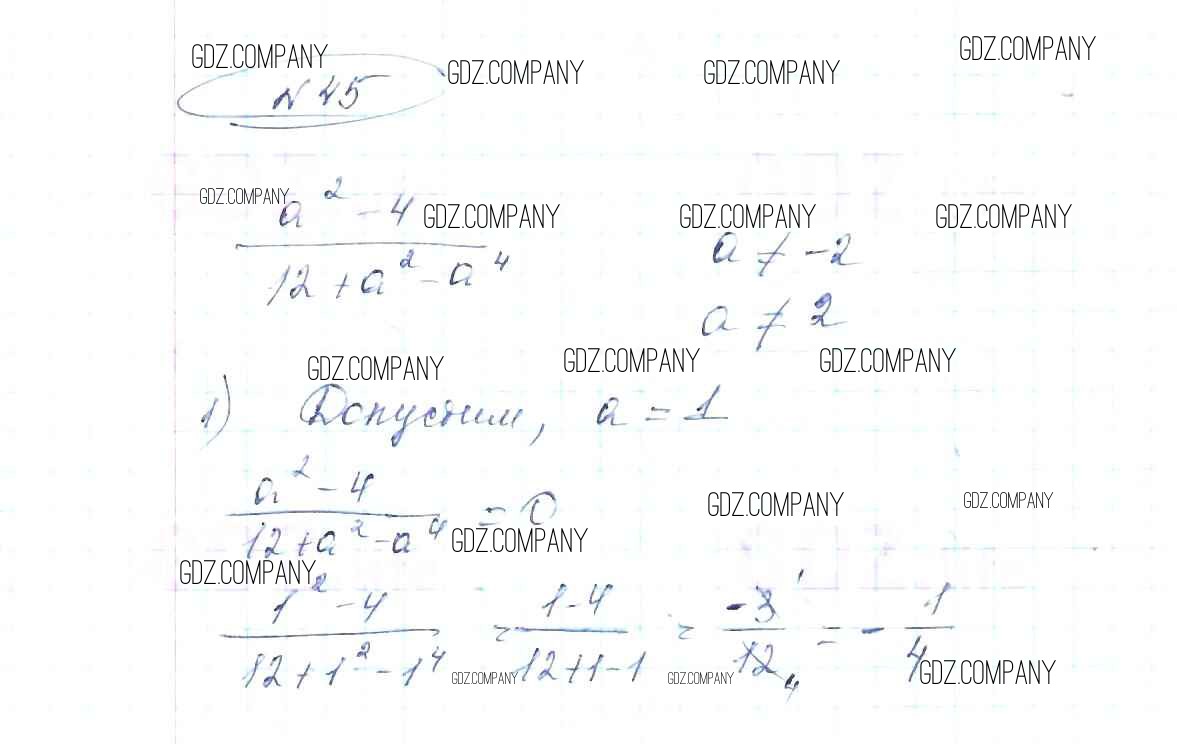 GDZ.COMPANY GDZ.COMPANY GDZ.COMPANY GDZ.COMPANY
№ 45
GDZ.COMPANY GDZ.COMPANY GDZ.COMPANY GDZ.COMPANY
a² - 4 / 12 + a² - a⁴
a ≠ -2
a ≠ 2
GDZ.COMPANY GDZ.COMPANY GDZ.COMPANY
1) Допустим, a = 1
GDZ.COMPANY GDZ.COMPANY
a² - 4 / 12 + a² - a⁴ = 0
GDZ.COMPANY
GDZ.COMPANY
1² - 4 / 12 + 1² - 1⁴ = 1 - 4 / 12 + 1 - 1 = -3 1 / 12 4 = - 1 / 4
GDZ.COMPANY GDZ.COMPANY GDZ.COMPANY